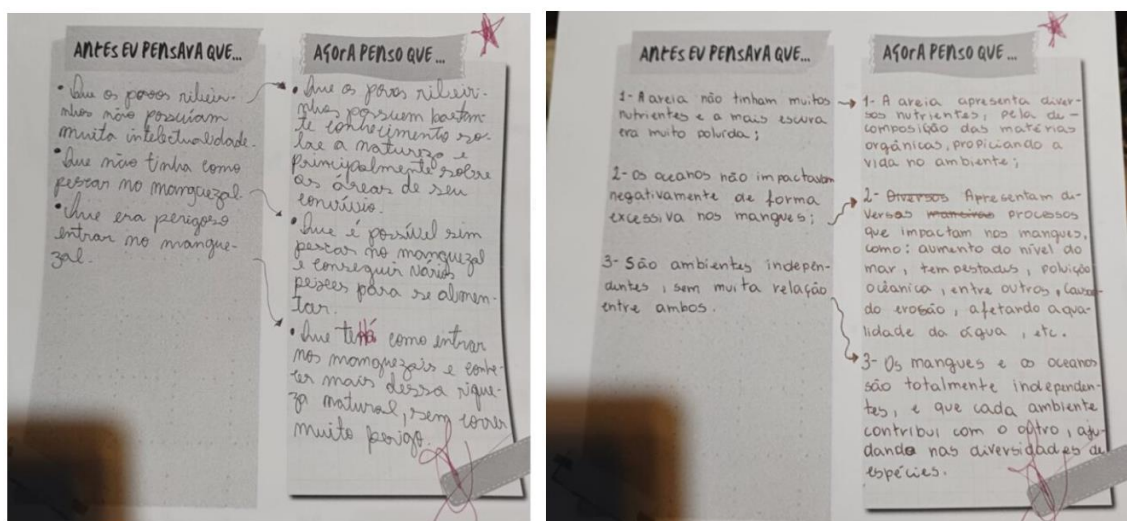 ANTES EU PENSAVA QUE...
• Que os povos ribeiri-
nhos não possuíam
muita intelectualidade.
• Que não tinha como
pescar no manguezal
• Que era perigoso
entrar no mangue-
zal.
AGORA PENSO QUE...
• Que os povos ribeiri-
nhos possuem bastan-
te conhecimento so-
bre a natureza e
principalmente sobre
as áreas de seu
convívio.
• Que é possível sim
pescar no manguezal
e conseguir vários
peixes para se alimen-
tar.
• Que Há como entrar
nos manguezais e conhe-
cer mais dessa rique-
za natural, sem correr
muito perigo.
ANTES EU PENSAVA QUE...
1- A areia não tinham muitos
nutrientes e a mais escura
era muito poluída;
2- os oceanos não impactavam
negativamente de forma
excessiva nos mangues;
3- São ambientes indepen-
dentes, sem muita relação
entre ambos.
AGORA PENSO QUE...
1- A areia apresenta diver-
sos nutrientes, pela de-
composição das matérias
orgânicas, propiciando a
vida no ambiente;
2- Diversos Apresentam di-
versas maneiras processos
que impactam nos mangues,
como: aumento do nível do
mar, tempestades, poluição
oceânica, entre outros, causan-
do erosão, afetando a qua-
lidade da água, etc.
3- Os mangues e os oceanos
são totalmente independen-
tes, e que cada ambiente
contribui com o outro, aju-
dando nas diversidades de
espécies.